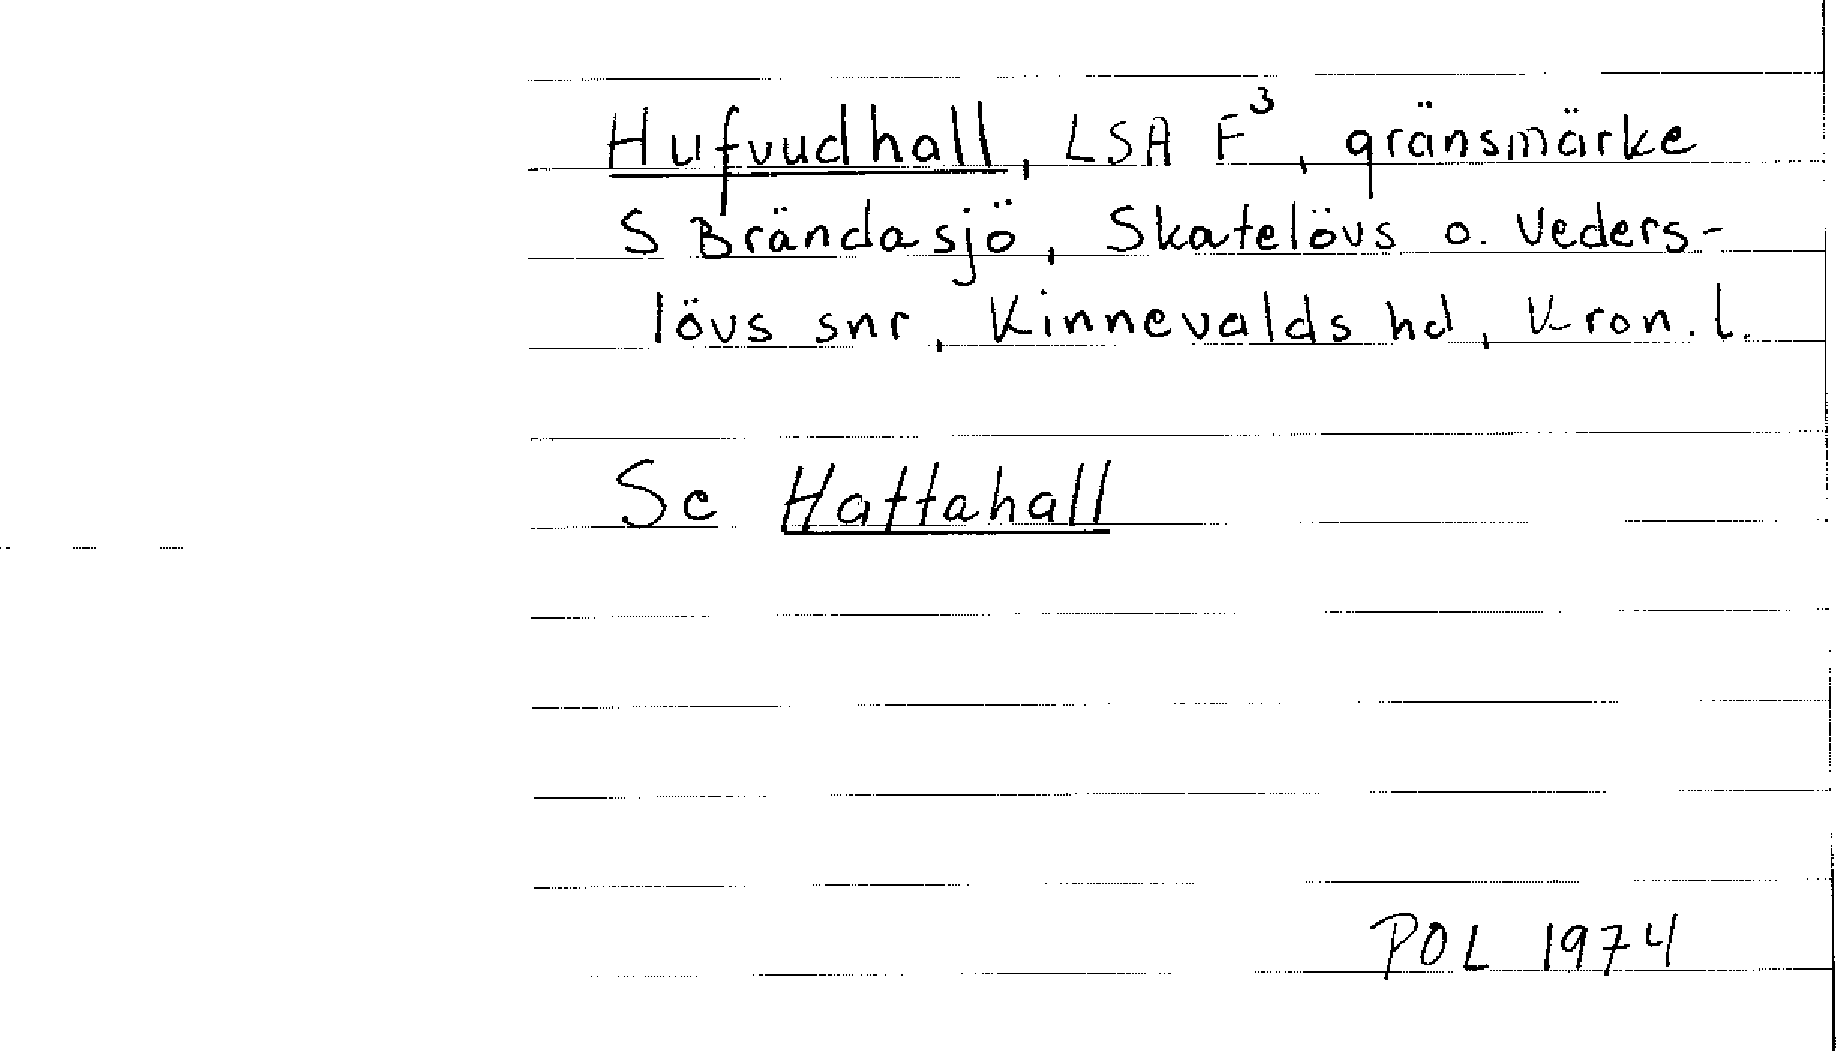 Hufvudhall, LSA F³, gränsmärke
S Brändasjö, Skatelövs o. Veders-
lövs snr, Kinnevalds hd, Kron. l.
Se Hattahall
POL 1974